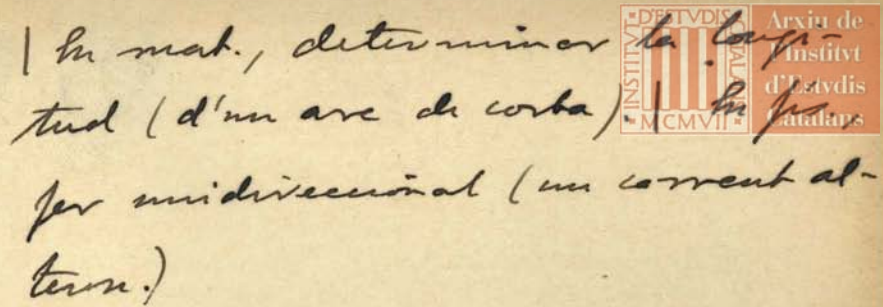 | En mat., determinar la longi-
tud (d'un arc de corba). | En fís.,
fer unidireccional (un corrent al-
tern.)
INSTITVT D'ESTVDIS CATALANS
MCMVII
Arxiu de
l'Institvt
d'Estvdis
Catalans